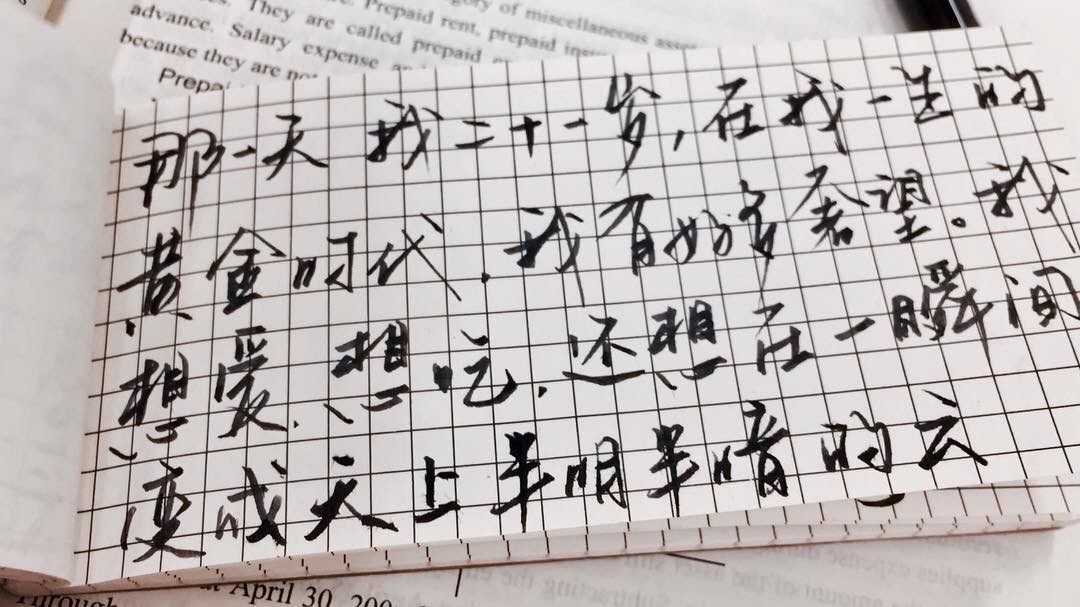 gory of miscellaneous asse
Prepaid rent, prepaid
They are called prepaid
advance. Salary expense
because they are
那一天 我二十一岁,在我一生的
黄金时代,我有好多奢望。我
想爱,想吃,还想在一瞬间
变成天上半明半暗的云
April 30, 200
Through